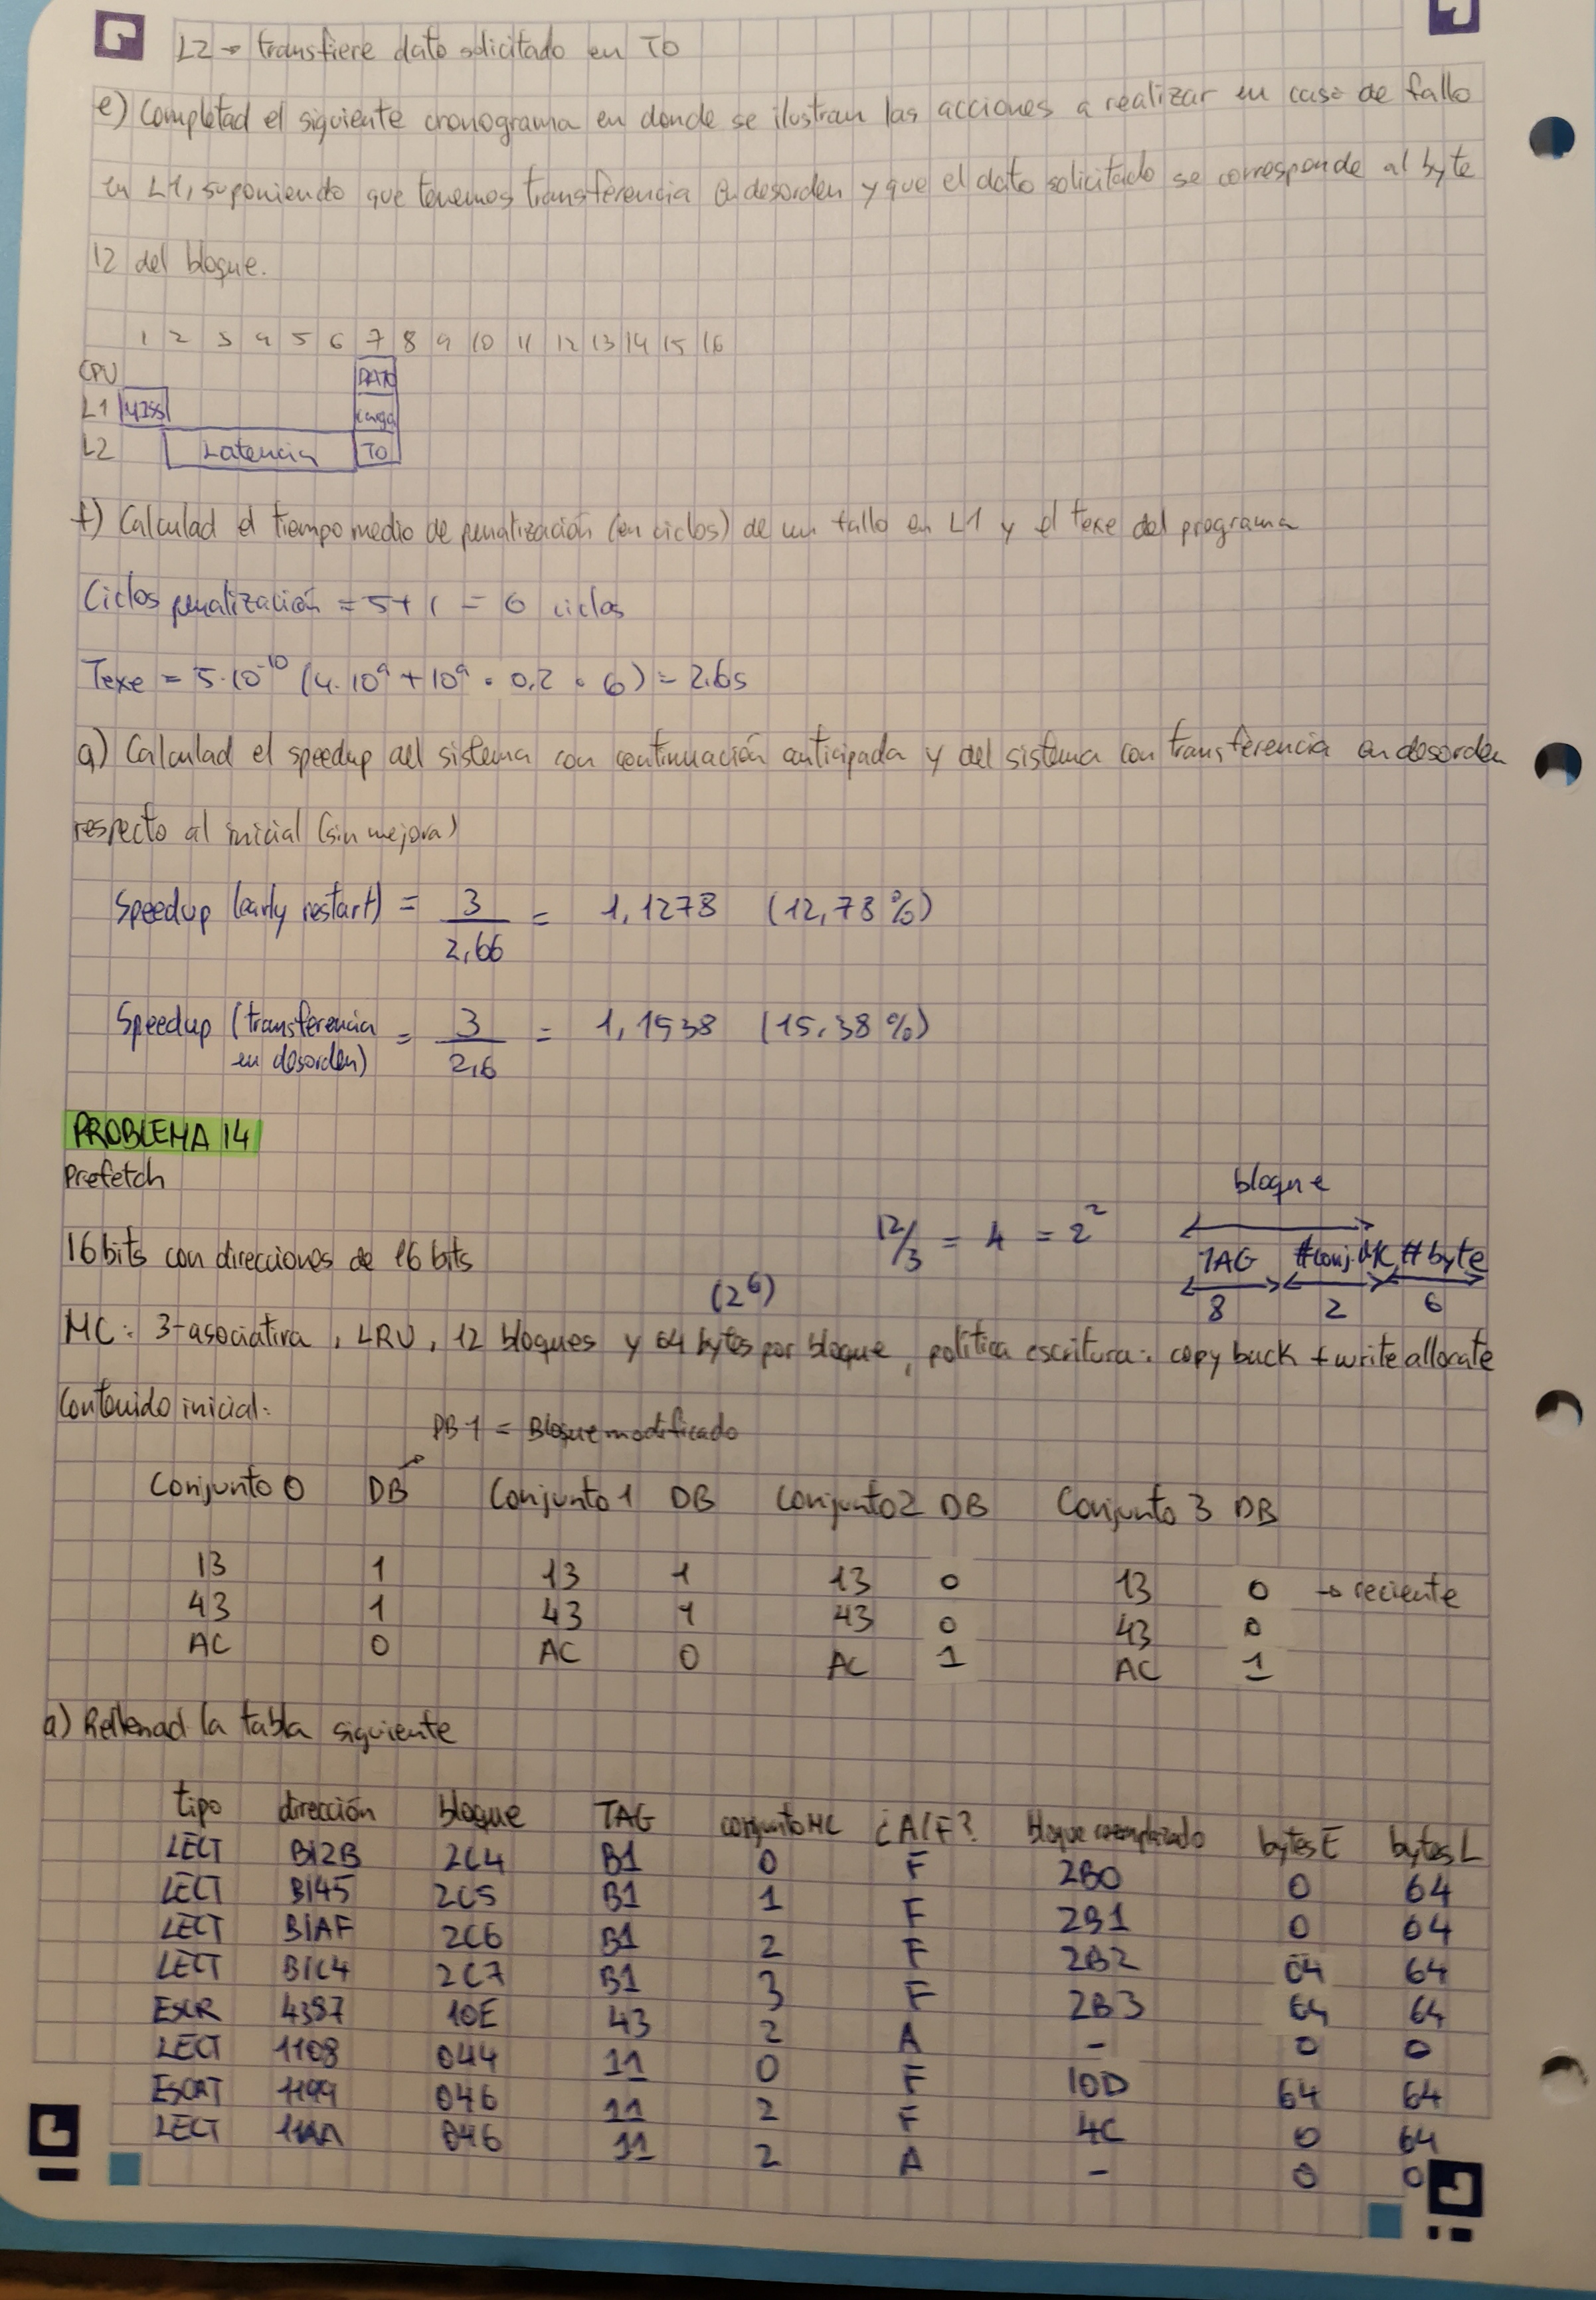 L2 → transfiere dato solicitado en T0
e) Completad el siguiente cronograma en donde se ilustran las acciones a realizar en caso de fallo
en L1, suponiendo que tenemos transferencia en desorden y que el dato solicitado se corresponde al byte
12 del bloque.
1 2 3 4 5 6 7 8 9 10 11 12 13 14 15 16
CPU DATO
L1 MISS carga
L2 Latencia T0
f) Calculad el tiempo medio de penalización (en ciclos) de un fallo en L1 y el texe del programa
Ciclos penalización = 5+1 = 6 ciclos
Texe = 5·10^-10 (4·10^9 + 10^9 · 0,2 · 6) = 2.6s
g) Calculad el speedup del sistema con continuación anticipada y del sistema con transferencia en desorden
respecto al inicial (sin mejora)
Speedup (early restart) = 3/2,66 = 1,1278 (12,78%)
Speedup (transferencia en desorden) = 3/2,6 = 1,1538 (15,38%)
PROBLEMA 14
Prefetch
bloque
12/3 = 4 = 2^2
16 bits con direcciones de 16 bits
TAG #conj.MC #byte
8 2 6
(2^6)
MC: 3-asociativa, LRU, 12 bloques y 64 bytes por bloque, política escritura: copy back + write allocate
Contenido inicial:
DB 1 = Bloque modificado
Conjunto 0 DB Conjunto 1 DB Conjunto 2 DB Conjunto 3 DB
13 1 13 1 13 0 13 0 → reciente
43 1 43 1 43 0 43 0
AC 0 AC 0 AC 1 AC 1
a) Rellenad la tabla siguiente
tipo dirección bloque TAG conjunto MC ¿A/F? bloque reemplazado bytes E bytes L
LECT B12B 2C4 B1 0 F 2B0 0 64
LECT B145 2C5 B1 1 F 2B1 0 64
LECT B1AF 2C6 B1 2 F 2B2 64 64
LECT B1C4 2C7 B1 3 F 2B3 64 64
ESCR 4397 10E 43 2 A - 0 0
LECT 1108 044 11 0 F 10D 64 64
ESCRT 1199 046 11 2 F 4C 0 64
LECT 11AA 046 11 2 A - 0 0